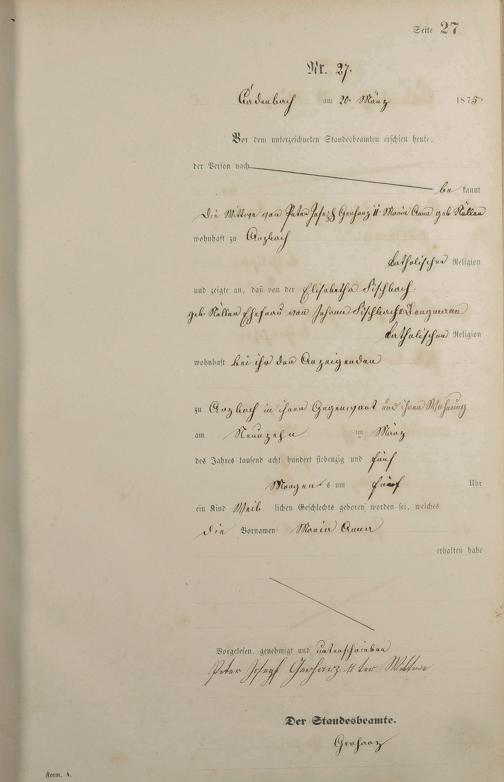 Seite 27
Nr. 27.
Cadenbach am 20. März 1875
Vor dem unterzeichneten Standesbeamten erschien heute,
der Person nach
be kannt
die Wittwe von Peter Joseph Gerharz II Maria Anna geb. Kölken
wohnhaft zu Arzbach
katholischer Religion
und zeigte an, daß von der Elisabetha Fischbach
geb. Kölken Ehefrau von Johann Fischbach
katholischer Religion
wohnhaft bei ihr der Anzeigenden
zu Arzbach in ihrer Gegenwart und ihrer Wohnung
am Neunzehn ten März
des Jahres tausend acht hundert siebenzig und fünf
Morgens um fünf Uhr
ein Kind Weib lichen Geschlechts geboren worden sei, welches
die Vornamen Maria Anna
erhalten habe
Vorgelesen, genehmigt und unterschrieben
Peter Joseph Gerharz II ter Wittwe
Der Standesbeamte.
Gerharz
Form. A.